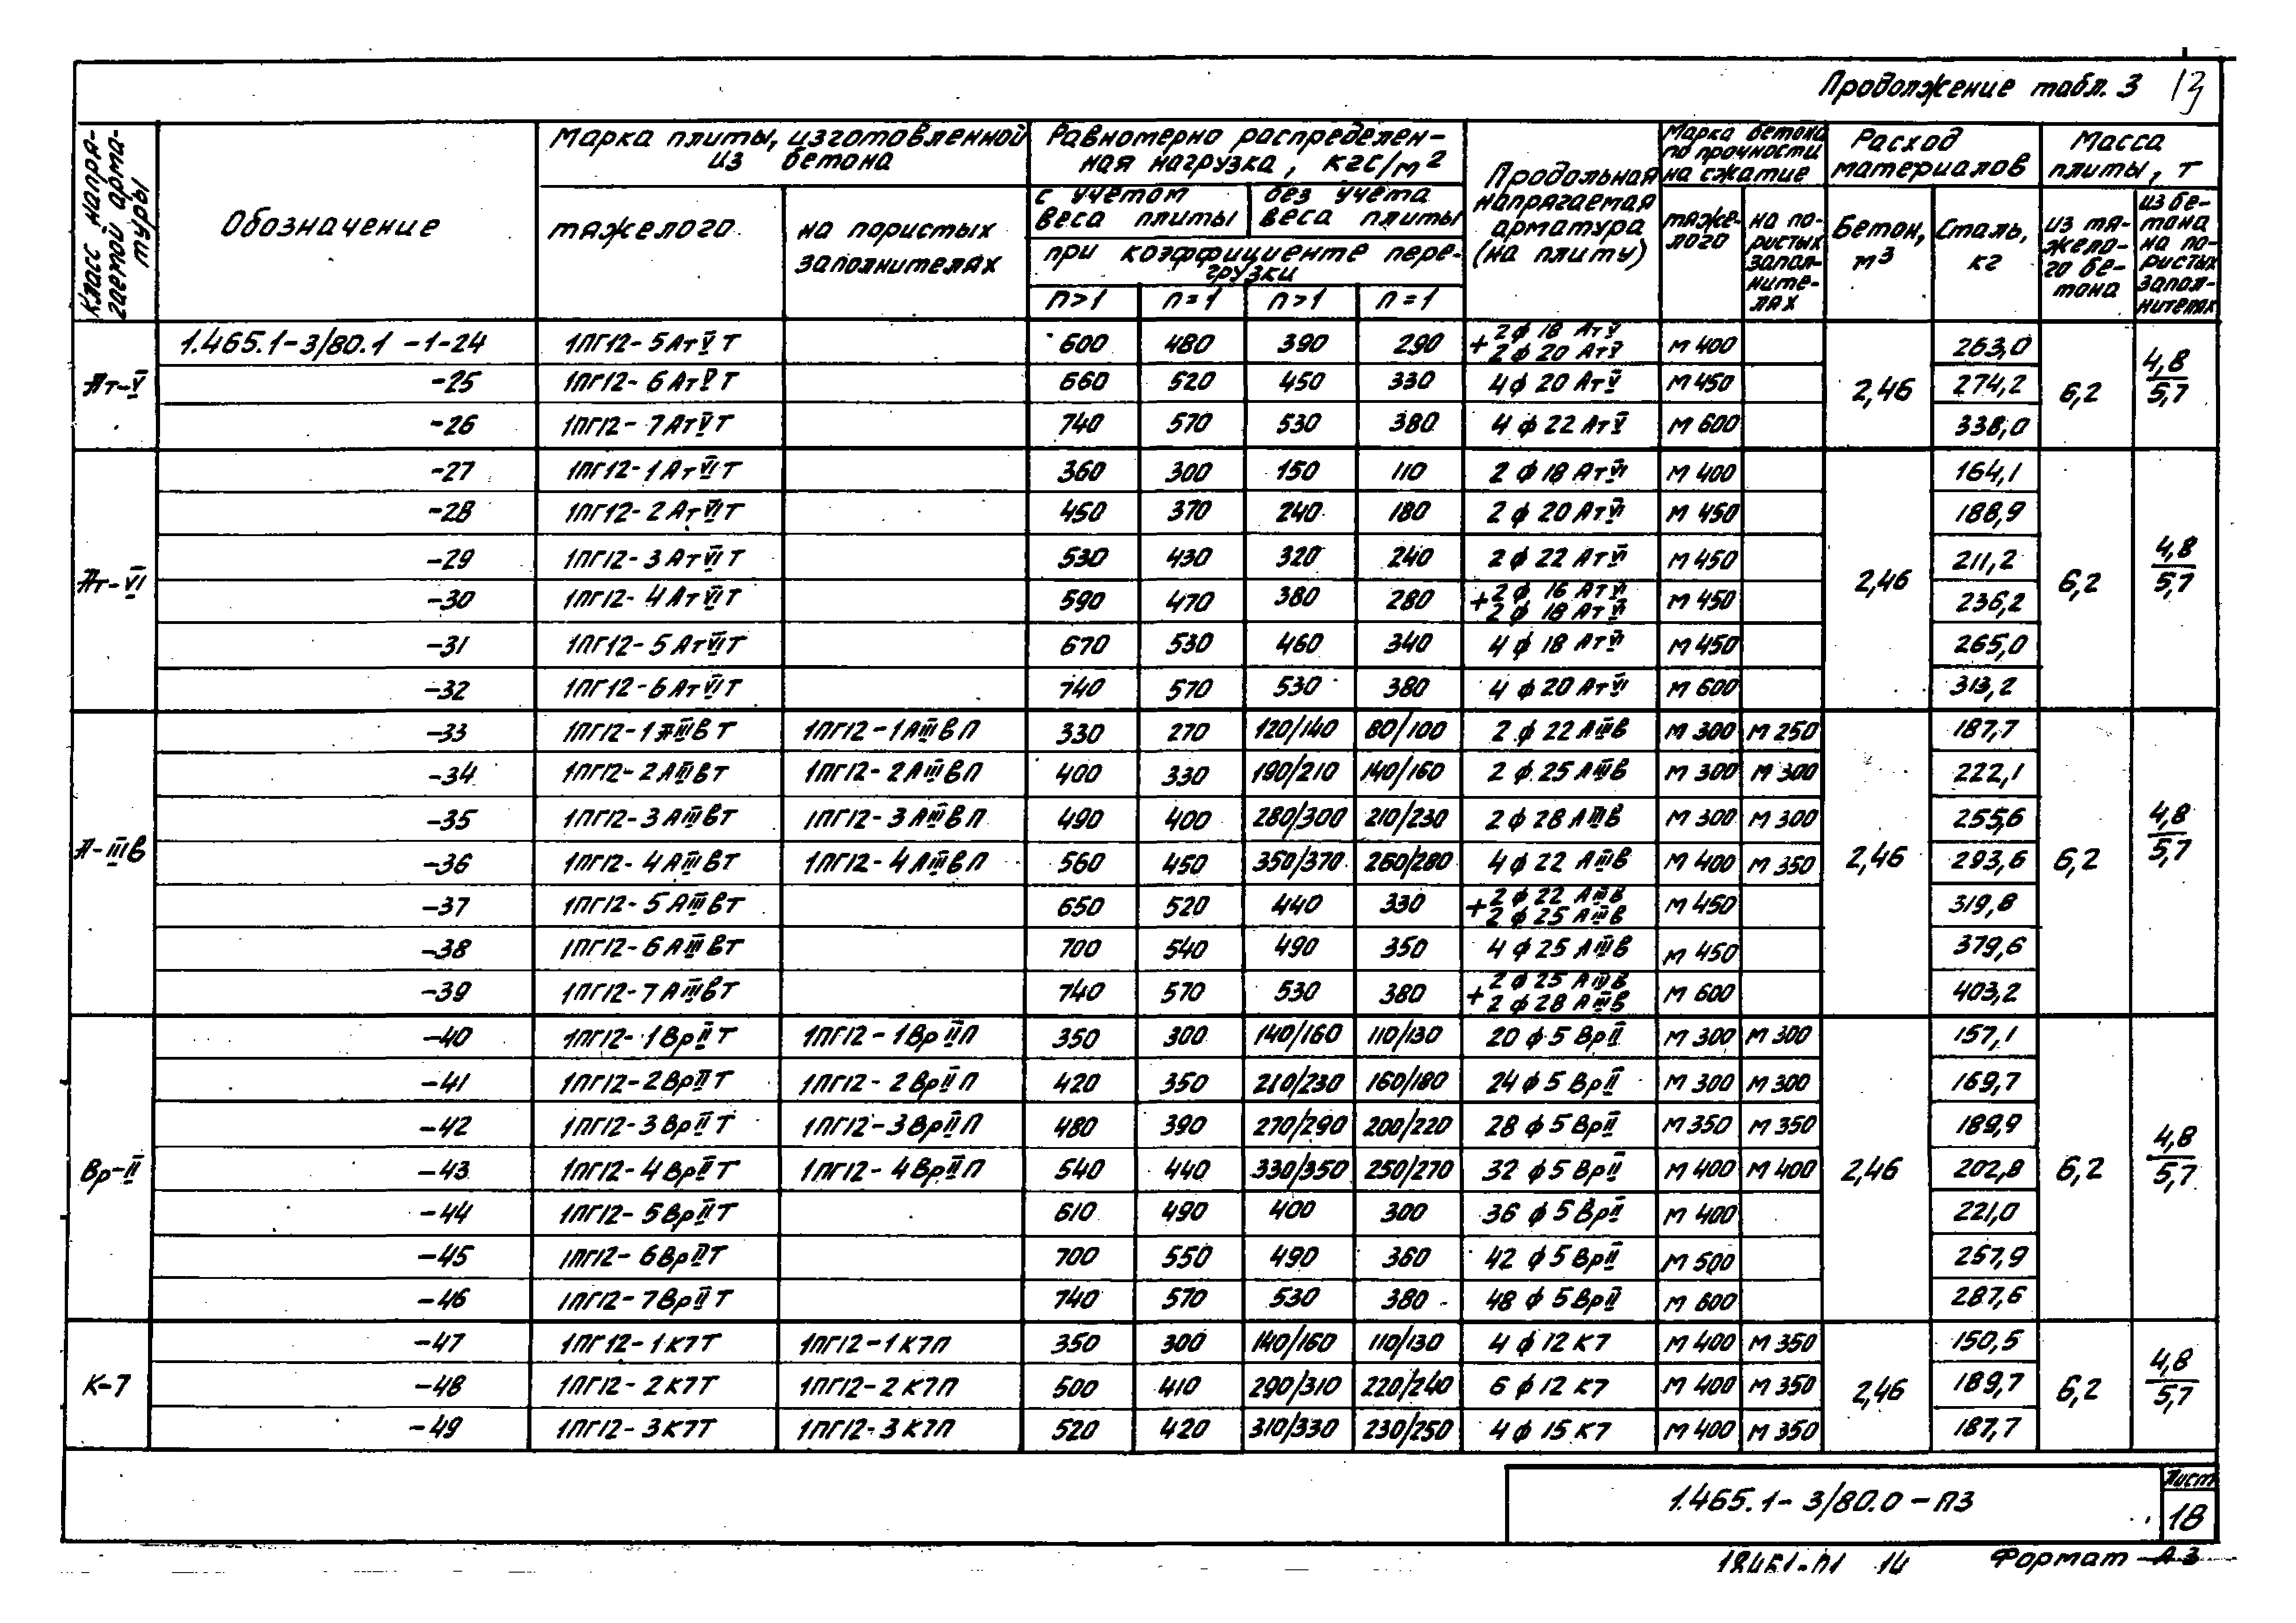 Продолжение табл. 3 13
Класс напря-
гаемой арма-
туры
Обозначение
Марка плиты, изготовленной
из бетона
тяжелого
на пористых
заполнителях
Равномерно распределен-
ная нагрузка, кгс/м²
с учетом
веса плиты
без учета
веса плиты
при коэффициенте пере-
грузки
n>1 n=1 n>1 n=1
Продольная
напрягаемая
арматура
(на плиту)
Марка бетона
по прочности
на сжатие
тяже-
лого
на по-
ристых
запол-
ните-
лях
Расход
материалов
Бетон,
м³
Сталь,
кг
Масса
плиты, т
из тя-
жело-
го бе-
тона
из бе-
тона
на по-
ристых
запол-
нителях
Ат-V 2,46 6,2 4,8/5,7
1.465.1-3/80.1 -1-24 1ПГ12-5АтVТ 600 480 390 290 2ф18 АтV + 2ф20 АтV М400 263,0
-25 1ПГ12-6АтVТ 660 520 450 330 4ф20 АтV М450 274,2
-26 1ПГ12-7АтVТ 740 570 530 380 4ф22 АтV М600 338,0
Ат-VI 2,46 6,2 4,8/5,7
-27 1ПГ12-1АтVIТ 360 300 150 110 2ф18 АтVI М400 164,1
-28 1ПГ12-2АтVIТ 450 370 240 180 2ф20 АтVI М450 188,9
-29 1ПГ12-3АтVIТ 530 430 320 240 2ф22 АтVI М450 211,2
-30 1ПГ12-4АтVIТ 590 470 380 280 2ф16 АтVI + 2ф18 АтVI М450 236,2
-31 1ПГ12-5АтVIТ 670 530 460 340 4ф18 АтVI М450 265,0
-32 1ПГ12-6АтVIТ 740 570 530 380 4ф20 АтVI М600 313,2
А-IIIв 2,46 6,2 4,8/5,7
-33 1ПГ12-1АIIIвТ 1ПГ12-1АIIIвП 330 270 120/140 80/100 2ф22 АIIIв М300 М250 187,7
-34 1ПГ12-2АIIIвТ 1ПГ12-2АIIIвП 400 330 190/210 140/160 2ф25 АIIIв М300 М300 222,1
-35 1ПГ12-3АIIIвТ 1ПГ12-3АIIIвП 490 400 280/300 210/230 2ф28 АIIIв М300 М300 255,6
-36 1ПГ12-4АIIIвТ 1ПГ12-4АIIIвП 560 450 350/370 260/280 4ф22 АIIIв М400 М350 293,6
-37 1ПГ12-5АIIIвТ 650 520 440 330 2ф22 АIIIв + 2ф25 АIIIв М450 319,8
-38 1ПГ12-6АIIIвТ 700 540 490 350 4ф25 АIIIв М450 379,6
-39 1ПГ12-7АIIIвТ 740 570 530 380 2ф25 АIIIв + 2ф28 АIIIв М600 403,2
Вр-II 2,46 6,2 4,8/5,7
-40 1ПГ12-1ВрIIТ 1ПГ12-1ВрIIП 350 300 140/160 110/130 20ф5 ВрII М300 М300 157,1
-41 1ПГ12-2ВрIIТ 1ПГ12-2ВрIIП 420 350 210/230 160/180 24ф5 ВрII М300 М300 169,7
-42 1ПГ12-3ВрIIТ 1ПГ12-3ВрIIП 480 390 270/290 200/220 28ф5 ВрII М350 М350 189,9
-43 1ПГ12-4ВрIIТ 1ПГ12-4ВрIIП 540 440 330/350 250/270 32ф5 ВрII М400 М400 202,8
-44 1ПГ12-5ВрIIТ 610 490 400 300 36ф5 ВрII М400 221,0
-45 1ПГ12-6ВрIIТ 700 550 490 360 42ф5 ВрII М500 257,9
-46 1ПГ12-7ВрIIТ 740 570 530 380 48ф5 ВрII М600 287,6
К-7 2,46 6,2 4,8/5,7
-47 1ПГ12-1К7Т 1ПГ12-1К7П 350 300 140/160 110/130 4ф12 К7 М400 М350 150,5
-48 1ПГ12-2К7Т 1ПГ12-2К7П 500 410 290/310 220/240 6ф12 К7 М400 М350 189,7
-49 1ПГ12-3К7Т 1ПГ12-3К7П 520 420 310/330 230/250 4ф15 К7 М400 М350 187,7
1.465.1-3/80.0-ПЗ
Лист
18
18451-01 14 Формат А3